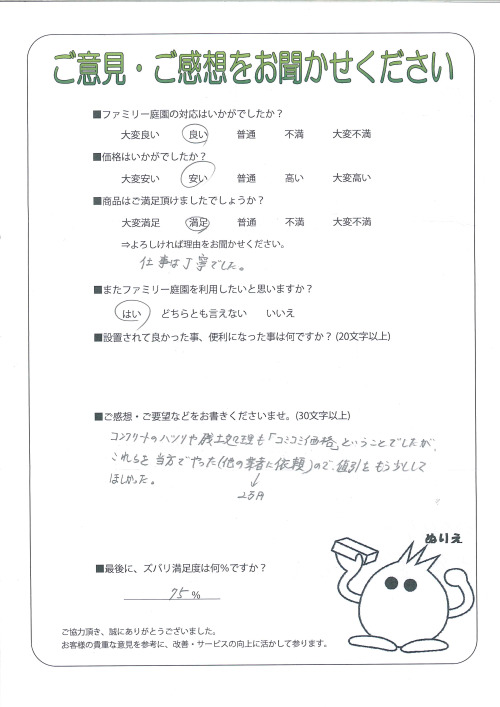 ご意見・ご感想をお聞かせください
■ファミリー庭園の対応はいかがでしたか？
大変良い 良い 普通 不満 大変不満
■価格はいかがでしたか？
大変安い 安い 普通 高い 大変高い
■商品はご満足頂けましたでしょうか？
大変満足 満足 普通 不満 大変不満
⇒よろしければ理由をお聞かせください。
仕事は丁寧でした。
■またファミリー庭園を利用したいと思いますか？
はい どちらとも言えない いいえ
■設置されて良かった事、便利になった事は何ですか？(20文字以上)
■ご感想・ご要望などをお書きくださいませ。(30文字以上)
コンクリートのハツリや残土処理も「コミコミ価格」ということでしたが、
これらを当方でやった(他の業者に依頼)ので、値引をもう少しして
ほしかった。
↓
2万円
ぬりえ
■最後に、ズバリ満足度は何％ですか？
75 %
ご協力頂き、誠にありがとうございました。
お客様の貴重な意見を参考に、改善・サービスの向上に活かして参ります。